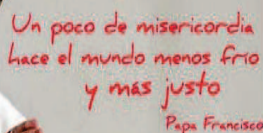 Un poco de misericordia
hace el mundo menos frío
y más justo
Papa Francisco